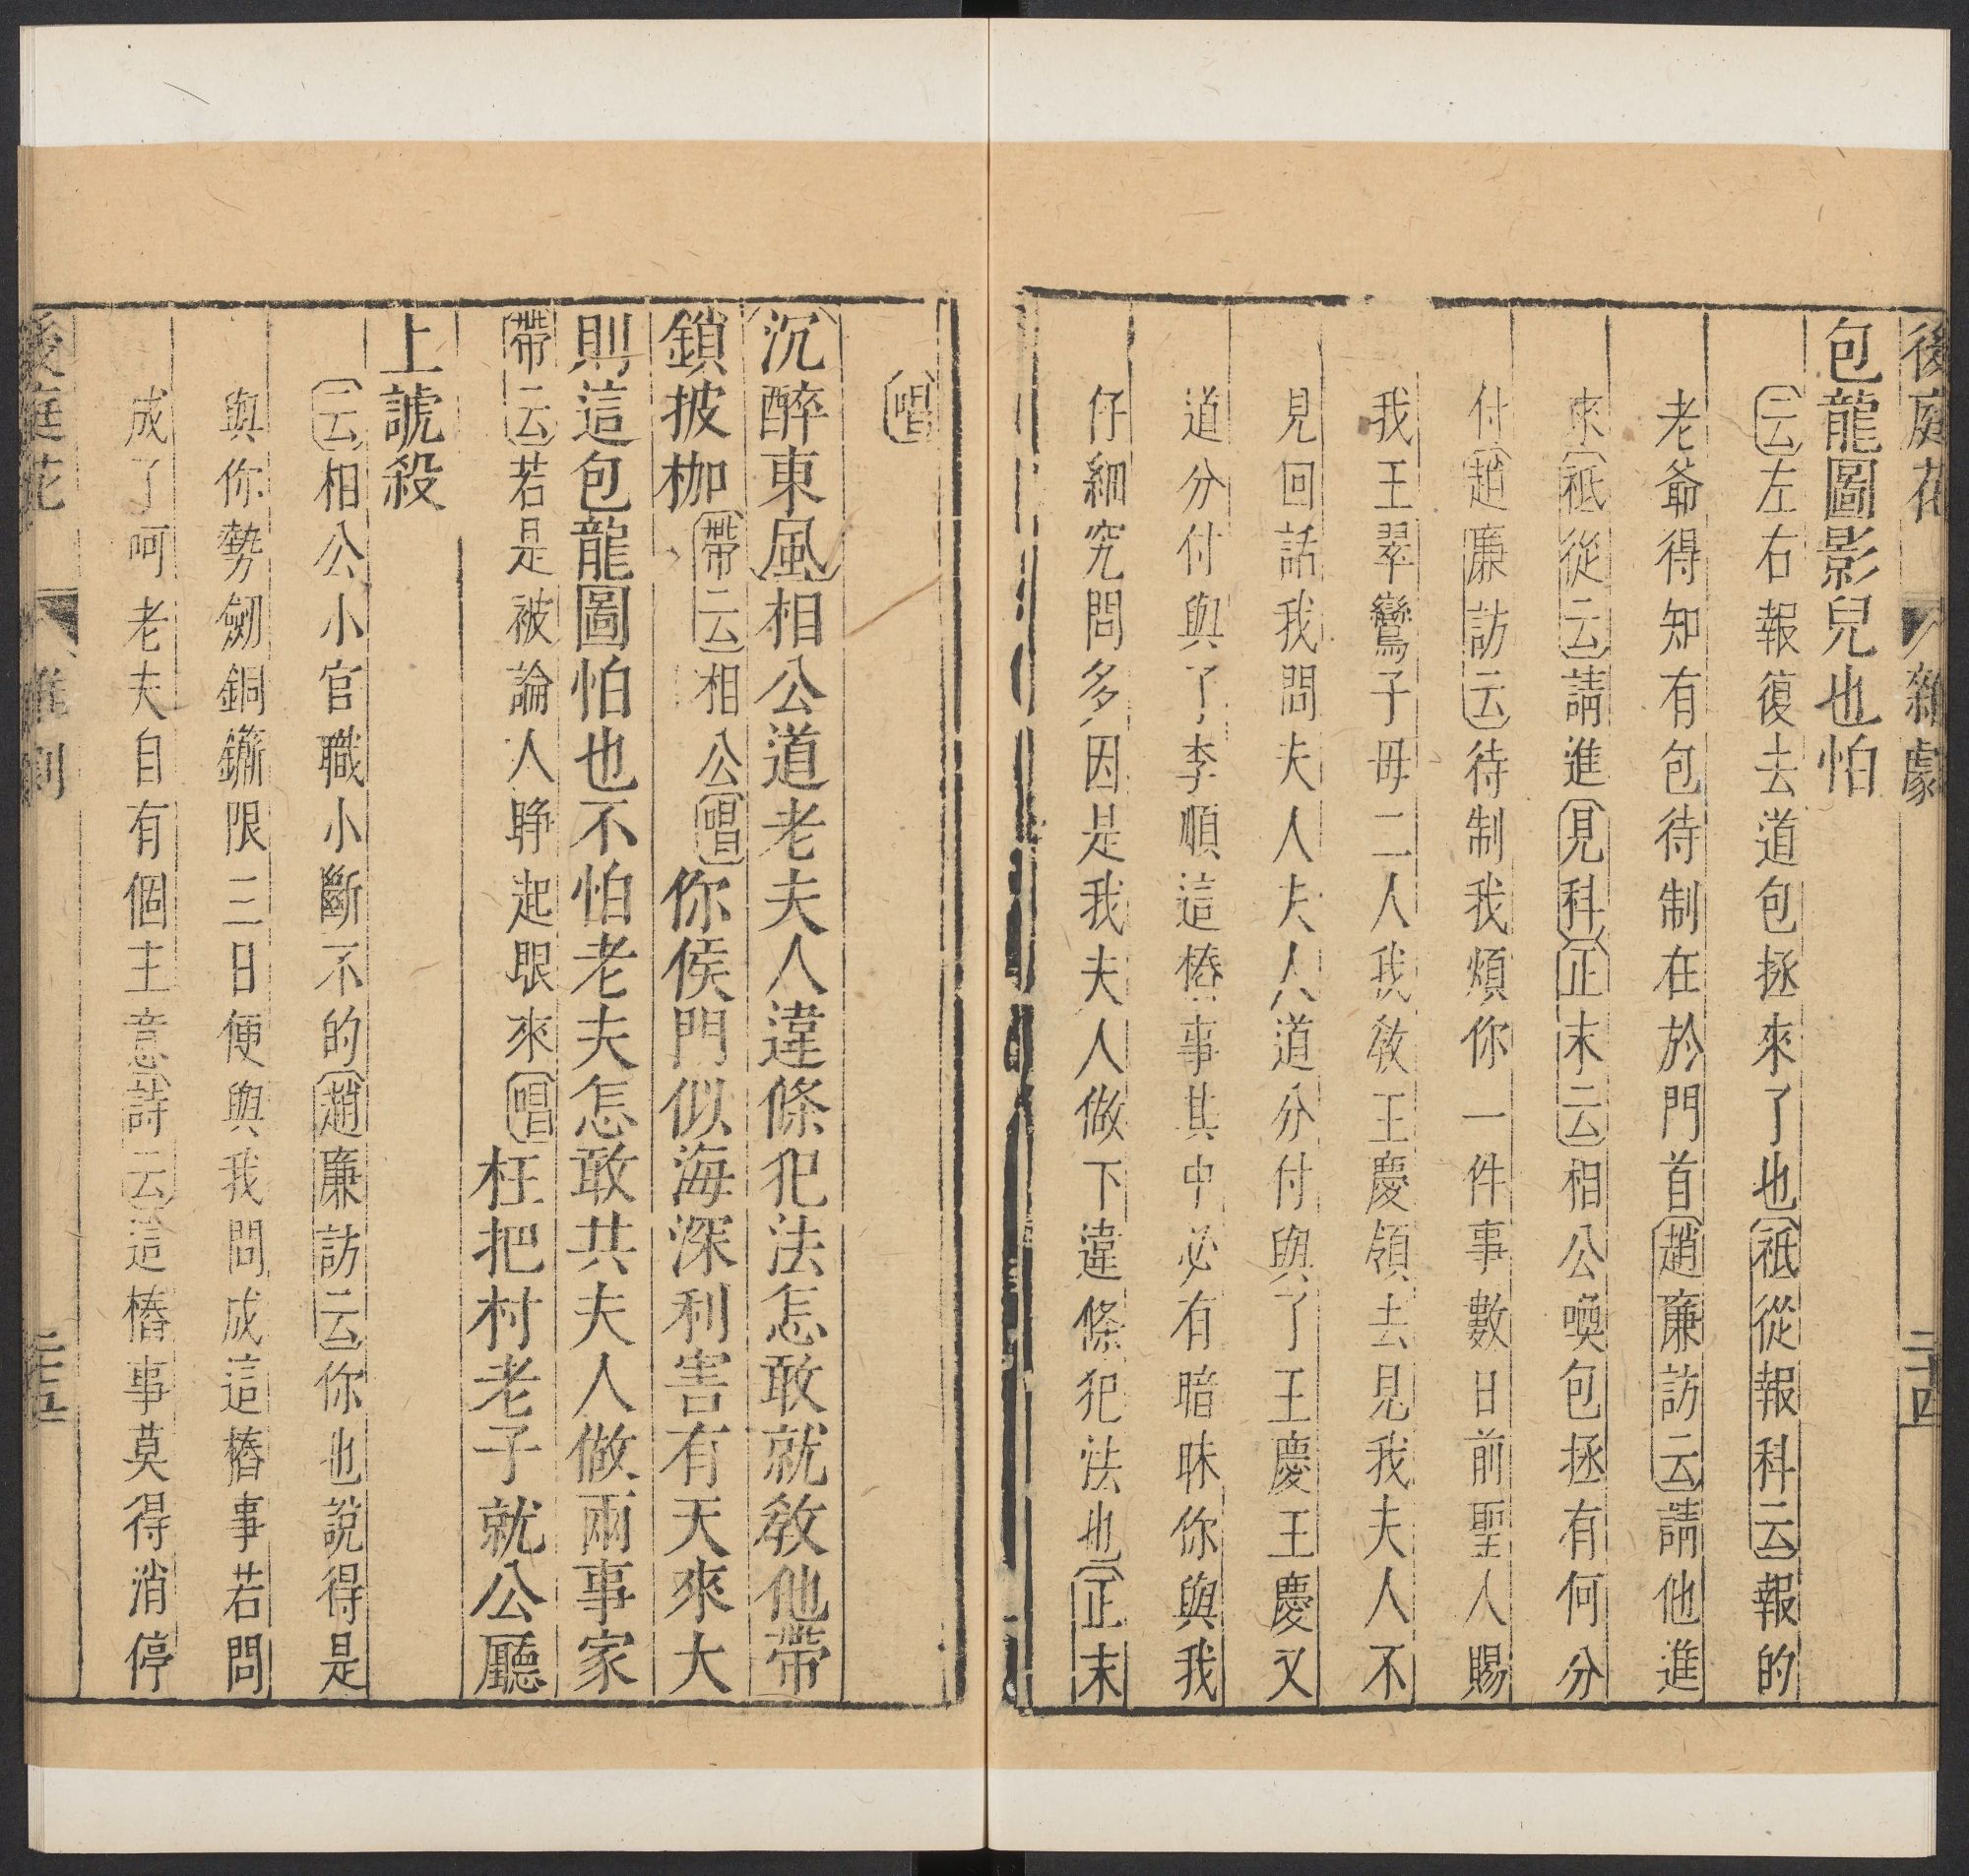 後庭花 雜劇 二十四
包龍圖影兒也怕
云左右報復去道包拯來了也祗從報科云報的
老爺得知有包待制在於門首趙廉訪云請他進
來祗從云請進見科正末云相公喚包拯有何分
付趙廉訪云待制我煩你一件事數日前聖人賜
我王翠鸞子母二人我教王慶領去見我夫人不
見回話我問夫人夫人道分付與了王慶王慶又
道分付與了李順這樁事其中必有暗昧你與我
仔細究問多因是我夫人做下違條犯法也正末
唱
沉醉東風相公道老夫人違條犯法怎敢就教他帶
鎖披枷帶云相公唱你侯門似海深利害有天來大
則這包龍圖怕也不怕老夫怎敢共夫人做兩事家
帶云若是被論人睜起眼來唱枉把村老子就公廳
上諕殺
云相公小官職小斷不的趙廉訪云你也說得是
與你勢劍銅鍘限三日便與我問成這樁事若問
成了呵老夫自有個主意詩云這樁事莫得消停
後庭花 雜劇 二十五